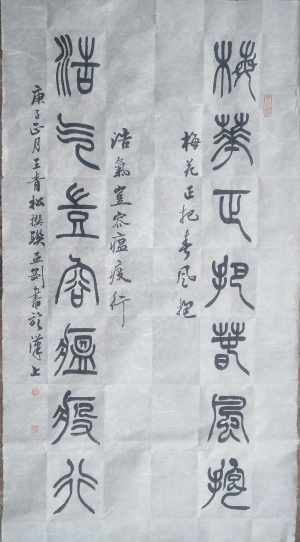 梅華正把春風抱
梅花正把春风抱
浩气豈容瘟疫行
浩氣豈容瘟疫行
庚子正月王青松撰聯亚剑書於漢上